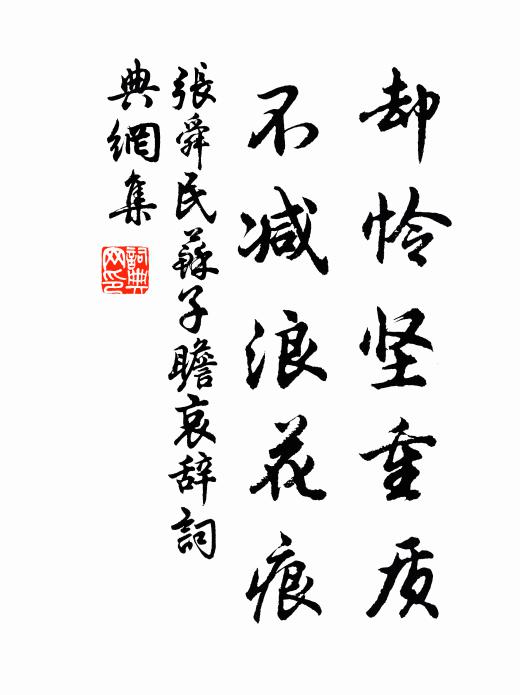 却怜坚重质
不减浪花痕
張舜民蘇子瞻哀辞詞
典網集
詞典
网印